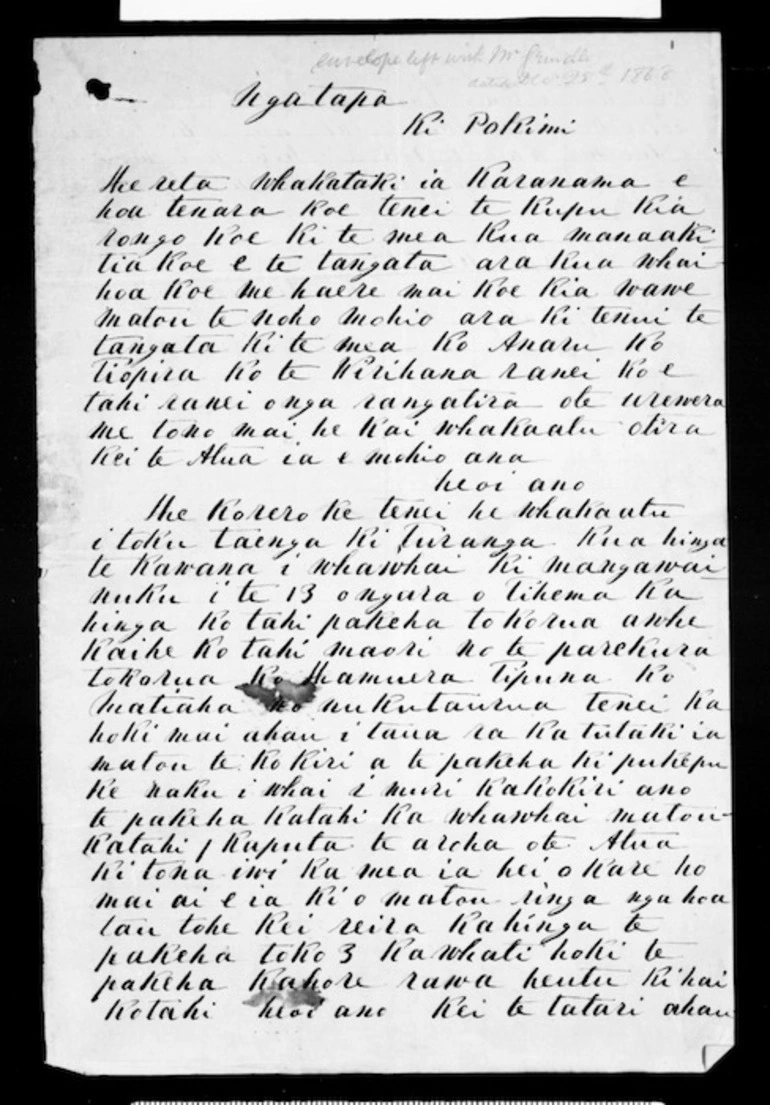 envelope left with Mr Grindle
dated Dec 28th 1868
Ngatapa
Ki Pokimi
He reta whakataki ia Karanama e
hoa tenara koe tenei te kupu kia
rongo koe ki te mea kua manaaki
tia koe e te tangata ara kua whai
hoa koe me haere mai koe kia wawe
matou te noho mohio ara ki tenui te
tangata ki te mea ko Anaru ko
Tiopira ko te Wirihana ranei ko e
tahi ranei onga rangatira ote urewera
me tono mai he kai whakaatu otira
kei te Atua ia e mohio ana
heoi ano
He korero ke tenei he whakaatu
i toku taenga ki Turanga kua hinga
te kawana i whawhai ki mangawai
nuku i te 13 ongura o Tihema ka
hinga ko tahi pakeha tokorua awhe
kaihe ko tahi maori no te parekura
tokorua ko Hamuera Tipuna ko
Matiaha ko nukutaurua tenei ka
hoki mai ahau i taua ra ka tutaki ia
matou te kokiri a te pakeha ki pukepu
ke naku i whai i muri kakokiri ano
te pakeha katahi ka whawhai matou
katahi kaputa te aroha ote Atua
ki tona iwi ka mea ia hei o kare ho
mai ai e ia ki o matou ringa nga hoa
tau tohe kei reira kahinga te
pakeha toko 3 kawhati hoki te
pakeha kahore rawa heutu kihai
kotahi heoi ano kei te tatari ahau